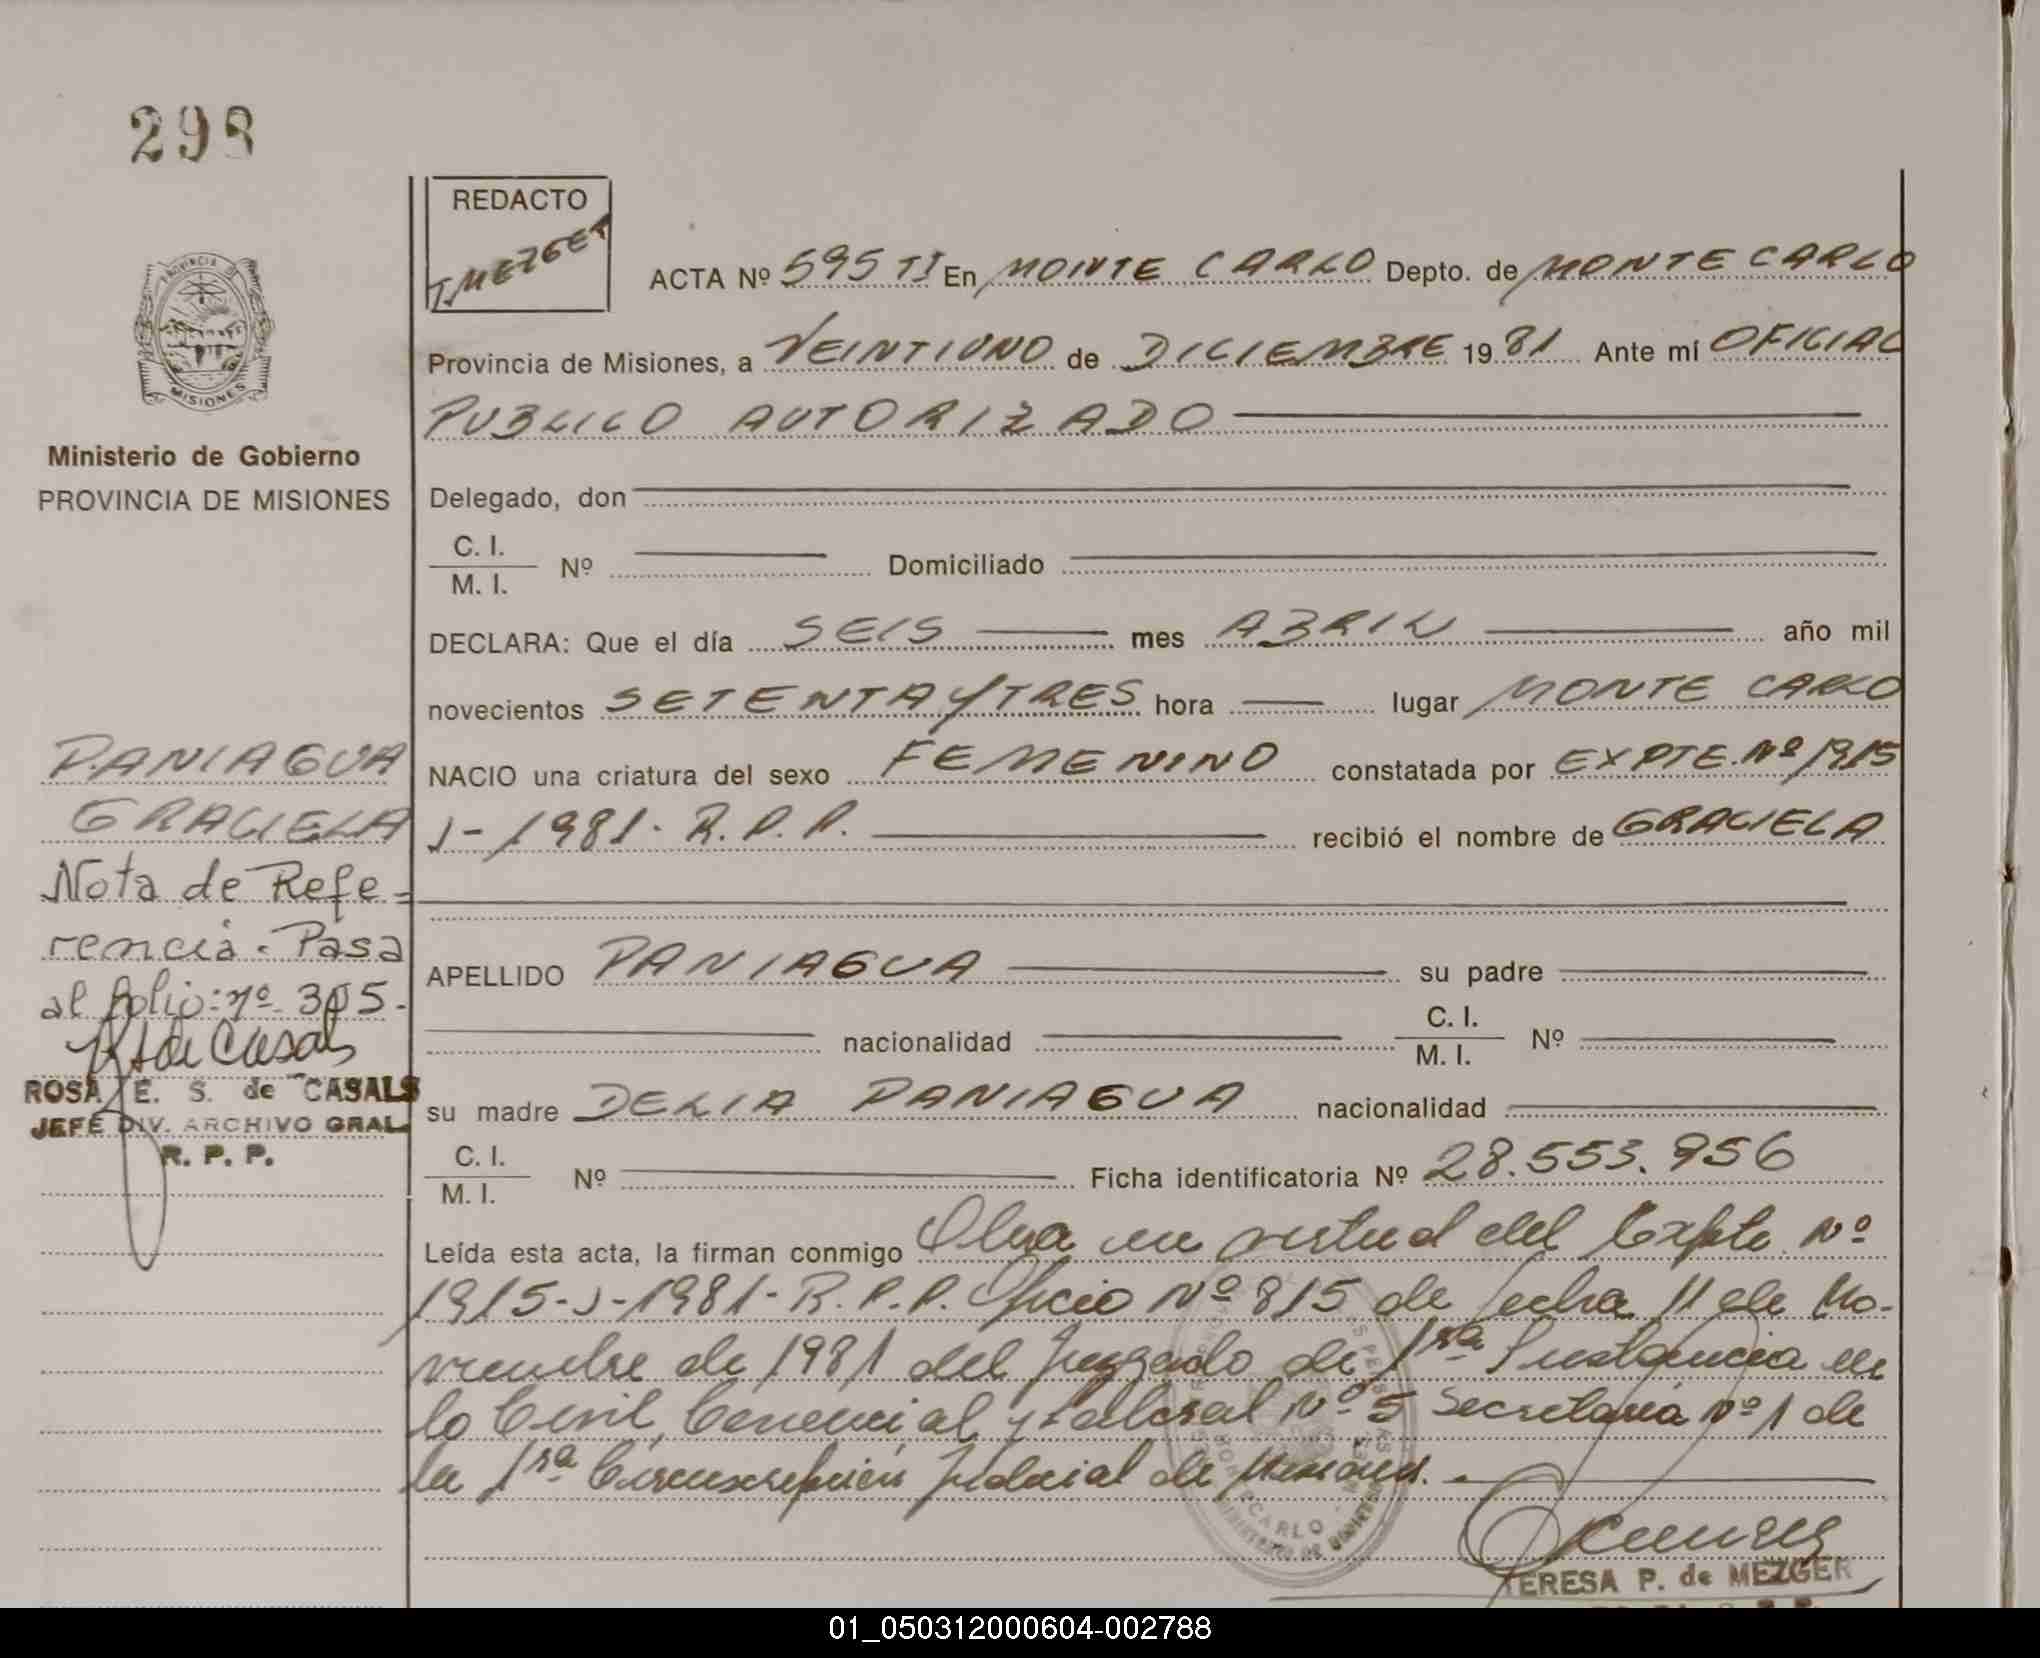 298
REDACTO
T. MEZGER
ACTA Nº 595 TI En MONTE CARLO Depto. de MONTE CARLO
Provincia de Misiones, a VEINTIUNO de DICIEMBRE 19 81 Ante mí OFICIAL
PUBLICO AUTORIZADO
PROVINCIA DE
MISIONES
Ministerio de Gobierno
PROVINCIA DE MISIONES
Delegado, don
C. I.
M. I. Nº Domiciliado
DECLARA: Que el día SEIS mes ABRIL año mil
novecientos SETENTA Y TRES hora lugar MONTE CARLO
NACIO una criatura del sexo FEMENINO constatada por EXPTE. Nº 1915
J-1981. R.P.P. recibió el nombre de GRACIELA
APELLIDO PANIAGUA su padre
nacionalidad C. I.
M. I. Nº
su madre DELIA PANIAGUA nacionalidad
C. I.
M. I. Nº Ficha identificatoria Nº 28.553.956
Leída esta acta, la firman conmigo Obra en virtud del Expte. Nº
1915-J-1981-R.P.P. Oficio Nº 815 de fecha 11 de No-
viembre de 1981 del Juzgado de 1ra Instancia en
lo Civil, Comercial y Laboral Nº 5 Secretaria Nº 1 de
la 1ra Circunscripción Judicial de Misiones.
PANIAGUA
GRACIELA
Nota de Refe-
rencia. Pasa
al folio: nº 305.
R S de Casals
ROSA E. S. de CASALS
JEFE DIV. ARCHIVO GRAL.
R. P. P.
TERESA P. de MEZGER
01_050312000604-002788